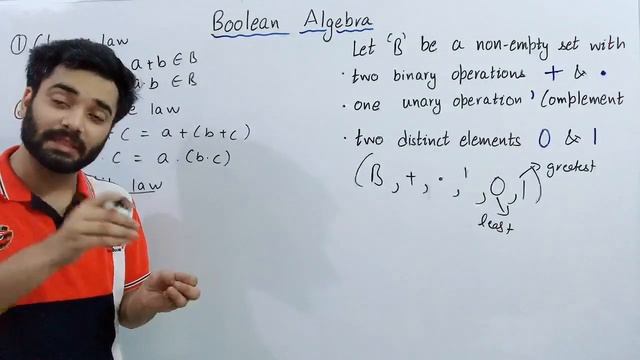 Boolean Algebra
① law
a+b ∈ B
a·b ∈ B
law
+ c = a + (b+c)
· c = a · (b·c)
law
Let 'B' be a non-empty set with
· two binary operations + & •
· one unary operation ' Complement
· two distinct elements 0 & 1
(B, +, ·, ', 0, 1)
greatest
least